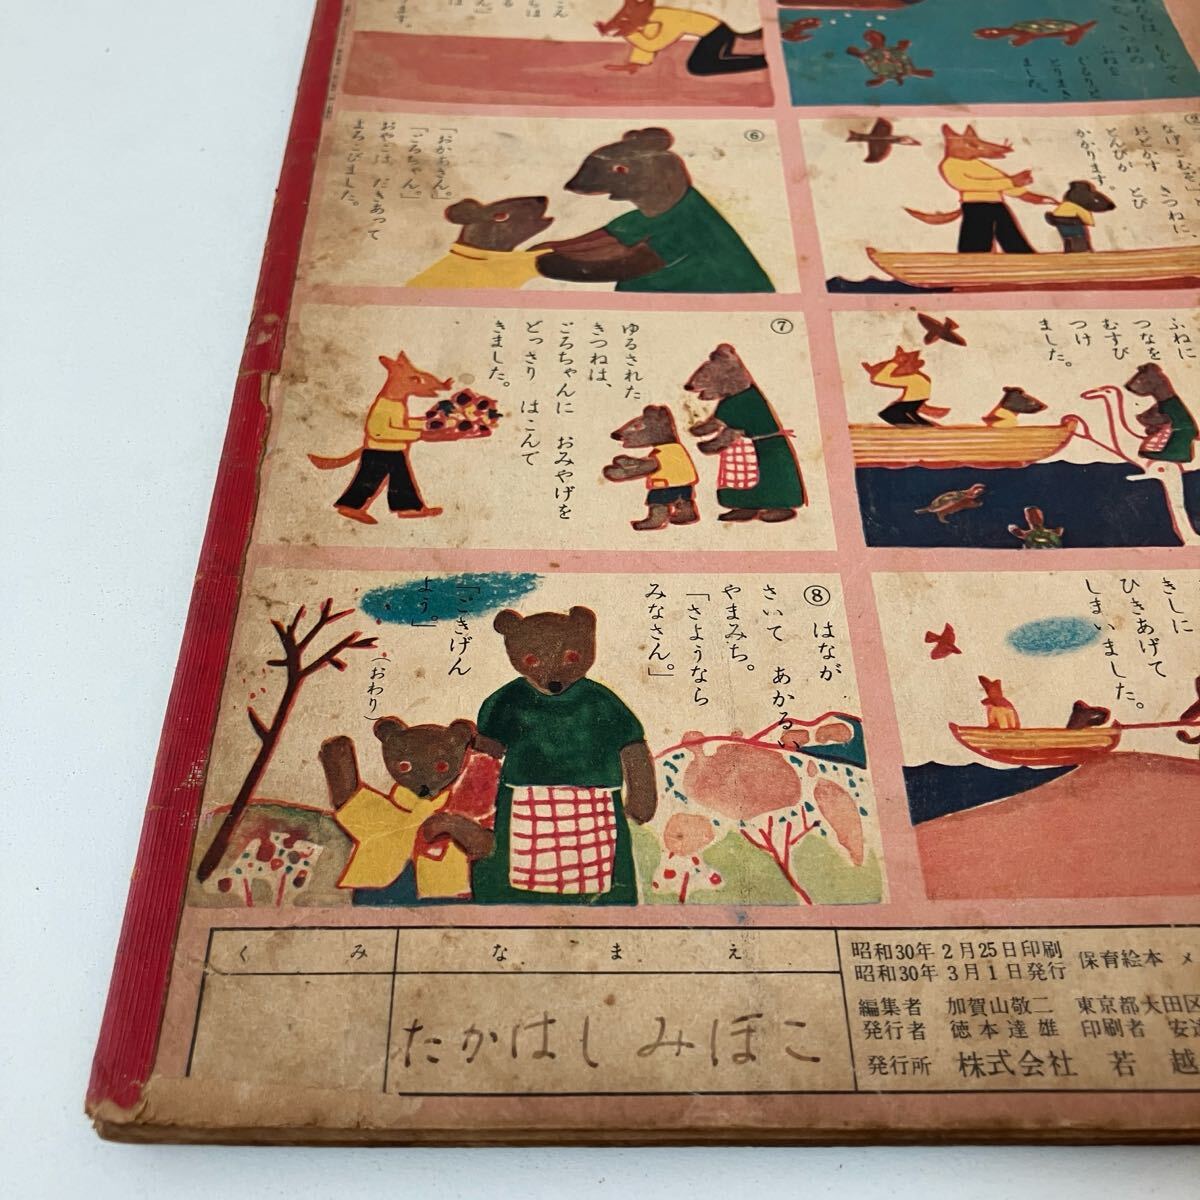 ⑥
「おかあさん。」
「ごろちゃん。」
おやこは だきあって
よろこびました。
なげこむぞ」と
おどかす きつねに、
とんびが とび
かかります。
⑦
ゆるされた
きつねは、
ごろちゃんに おみやげを
どっさり はこんで
きました。
ふねに
つなを
むすび
つけ
ました。
⑧ はなが
さいて あかるい
やまみち。
「さようなら
みなさん。」
「ごきげん
よう。」
(おわり)
きしに
ひきあげて
しまいました。
くみ
なまえ
たかはしみほこ
昭和30年2月25日印刷
昭和30年3月1日発行
保育絵本 メ
編集者 加賀山敬二 東京都大田区
発行者 徳本達雄 印刷者 安
発行所 株式会社 若越